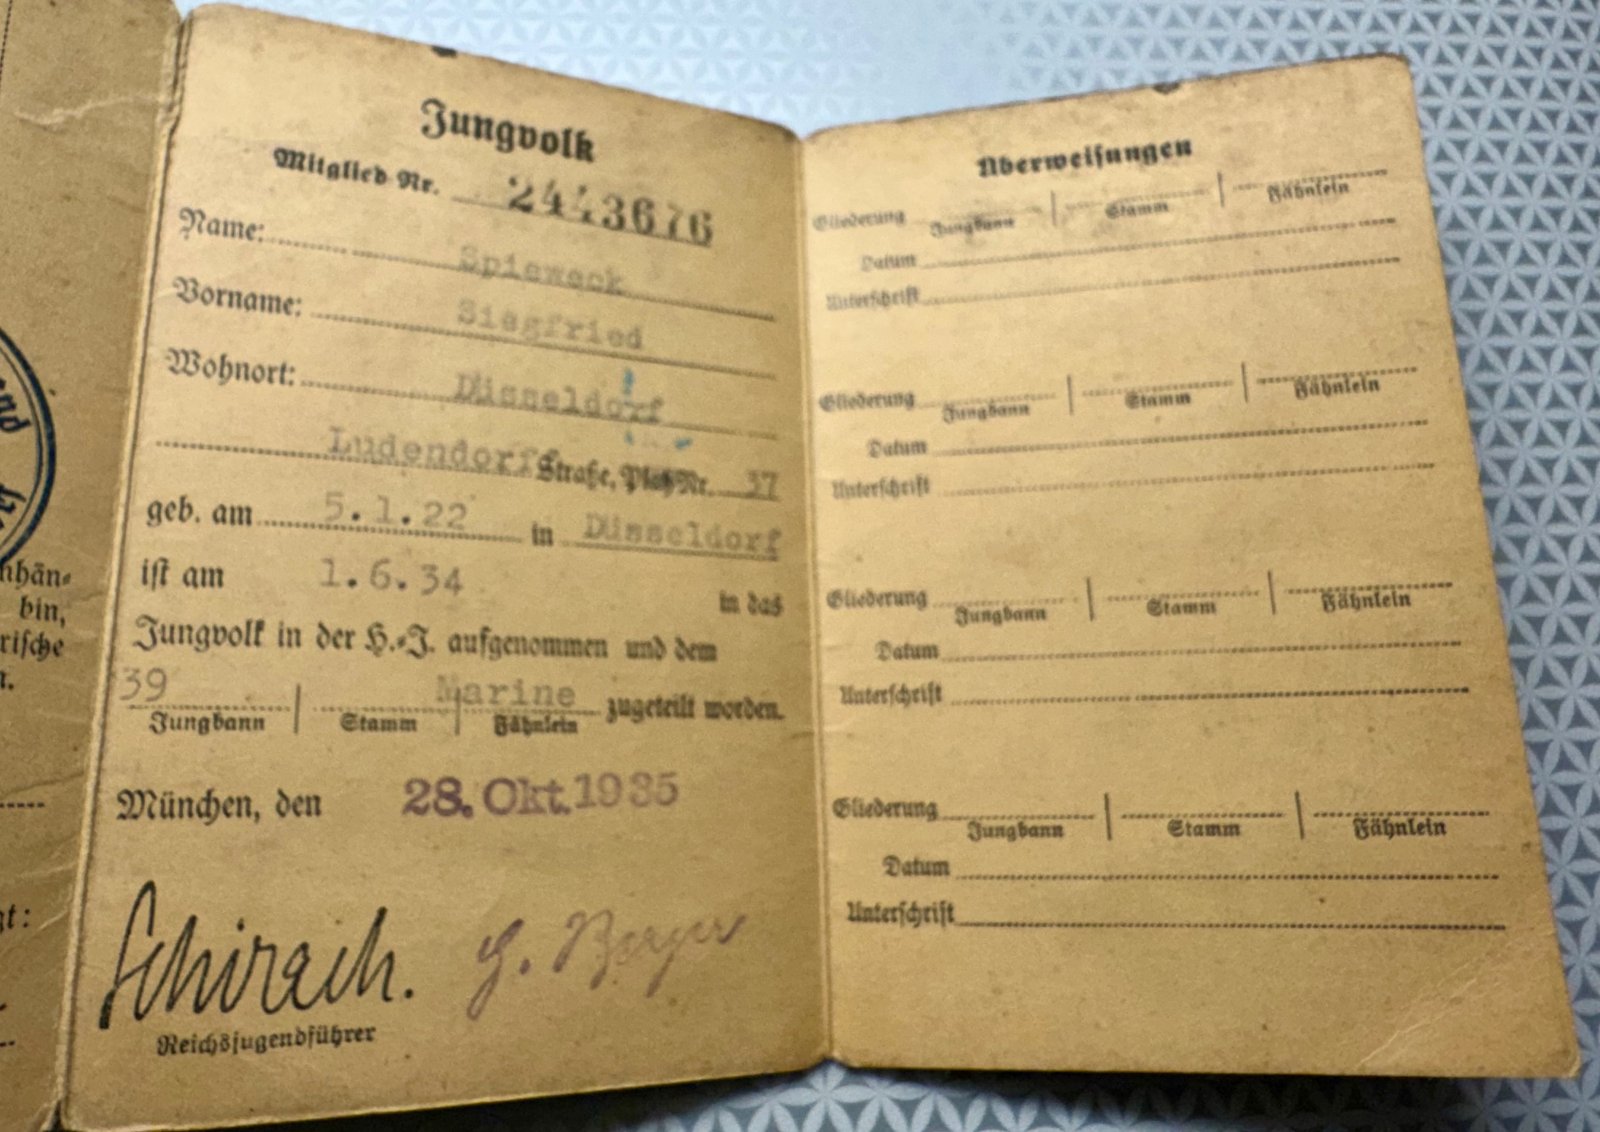 Jungvolk
Mitglied Nr. 2443676
Name: Spieweck
Vorname: Siegfried
Wohnort: Düsseldorf
Ludendorff Straße, Platz Nr. 37
geb. am 5.1.22 in Düsseldorf
ist am 1.6.34 in das
Jungvolk in der H.-J. aufgenommen und dem
39 Marine zugeteilt worden.
Jungbann Stamm Fähnlein
München, den 28. Okt. 1935
Schirach. G. Berger
Reichsjugendführer
Überweisungen
Gliederung
Jungbann Stamm Fähnlein
Datum
Unterschrift
Gliederung
Jungbann Stamm Fähnlein
Datum
Unterschrift
Gliederung
Jungbann Stamm Fähnlein
Datum
Unterschrift
Gliederung
Jungbann Stamm Fähnlein
Datum
Unterschrift
end
nhän-
bin,
rische
n.
gt: